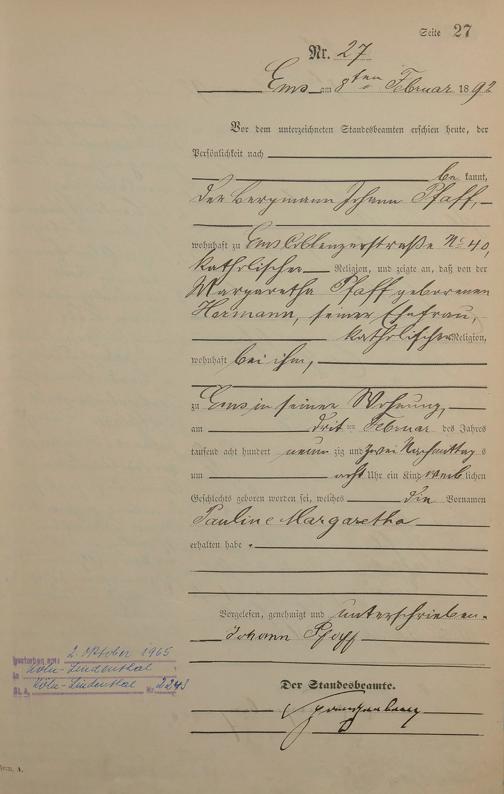 Seite 27
Nr. 27
Ems am 8ten Februar 1892
Vor dem unterzeichneten Standesbeamten erschien heute, der
Persönlichkeit nach
bekannt,
der Bergmann Johann Pfaff,
wohnhaft zu Ems Coblenzerstraße No 40,
katholischer Religion, und zeigte an, daß von der
Margaretha Pfaff geborenen
Hermann, seiner Ehefrau,
katholischer Religion,
wohnhaft bei ihm,
zu Ems in seiner Wohnung,
am dritten Februar des Jahres
tausend acht hundert neunzig und zwei Nachmittags
um acht Uhr ein Kind weiblichen
Geschlechts geboren worden sei, welches die Vornamen
Pauline Margaretha
erhalten habe.
Vorgelesen, genehmigt und unterschrieben.
Johann Pfaff
Der Standesbeamte.
gestorben am: 2. Oktober 1965
in Köln-Lindenthal
St. A. Köln-Lindenthal Nr. 2243